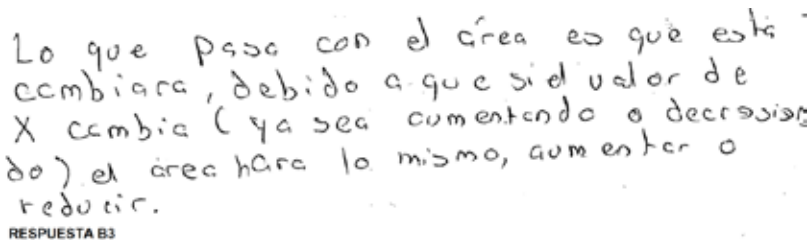 Lo que pasa con el área es que esta
cambiara, debido a que si el valor de
X cambia (ya sea aumentando o decressien
do) el area hara lo mismo, aumentar o
reducir.
RESPUESTA B3